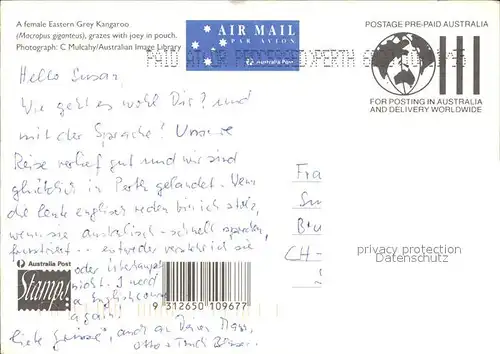 A female Eastern Grey Kangaroo
(Macropus giganteus), grazes with joey in pouch.
Photograph: C Mulcahy/Australian Image Library
AIR MAIL
PAR AVION
Australia Post
PAID AT
PERTH
POSTAGE PRE-PAID AUSTRALIA
FOR POSTING IN AUSTRALIA
AND DELIVERY WORLDWIDE
Hello Susan,
Wie geht es wohl Dir? und
mit der Sprache! Unsere
Reise verlief gut und wir sind
glücklich in Perth gelandet. Wenn
die Leute englisch reden bin ich stolz,
wenn sie australisch - schnell sprechen,
frustriert - entweder verstehe ich sie
oder überhaupt
nicht. I need
a English
again!
liebe Grüsse, auch an Deine
Otto + Trudi
Fra
Su
CH-
privacy protection
Datenschutz
Australia Post
Stamp!
9 312650 109677